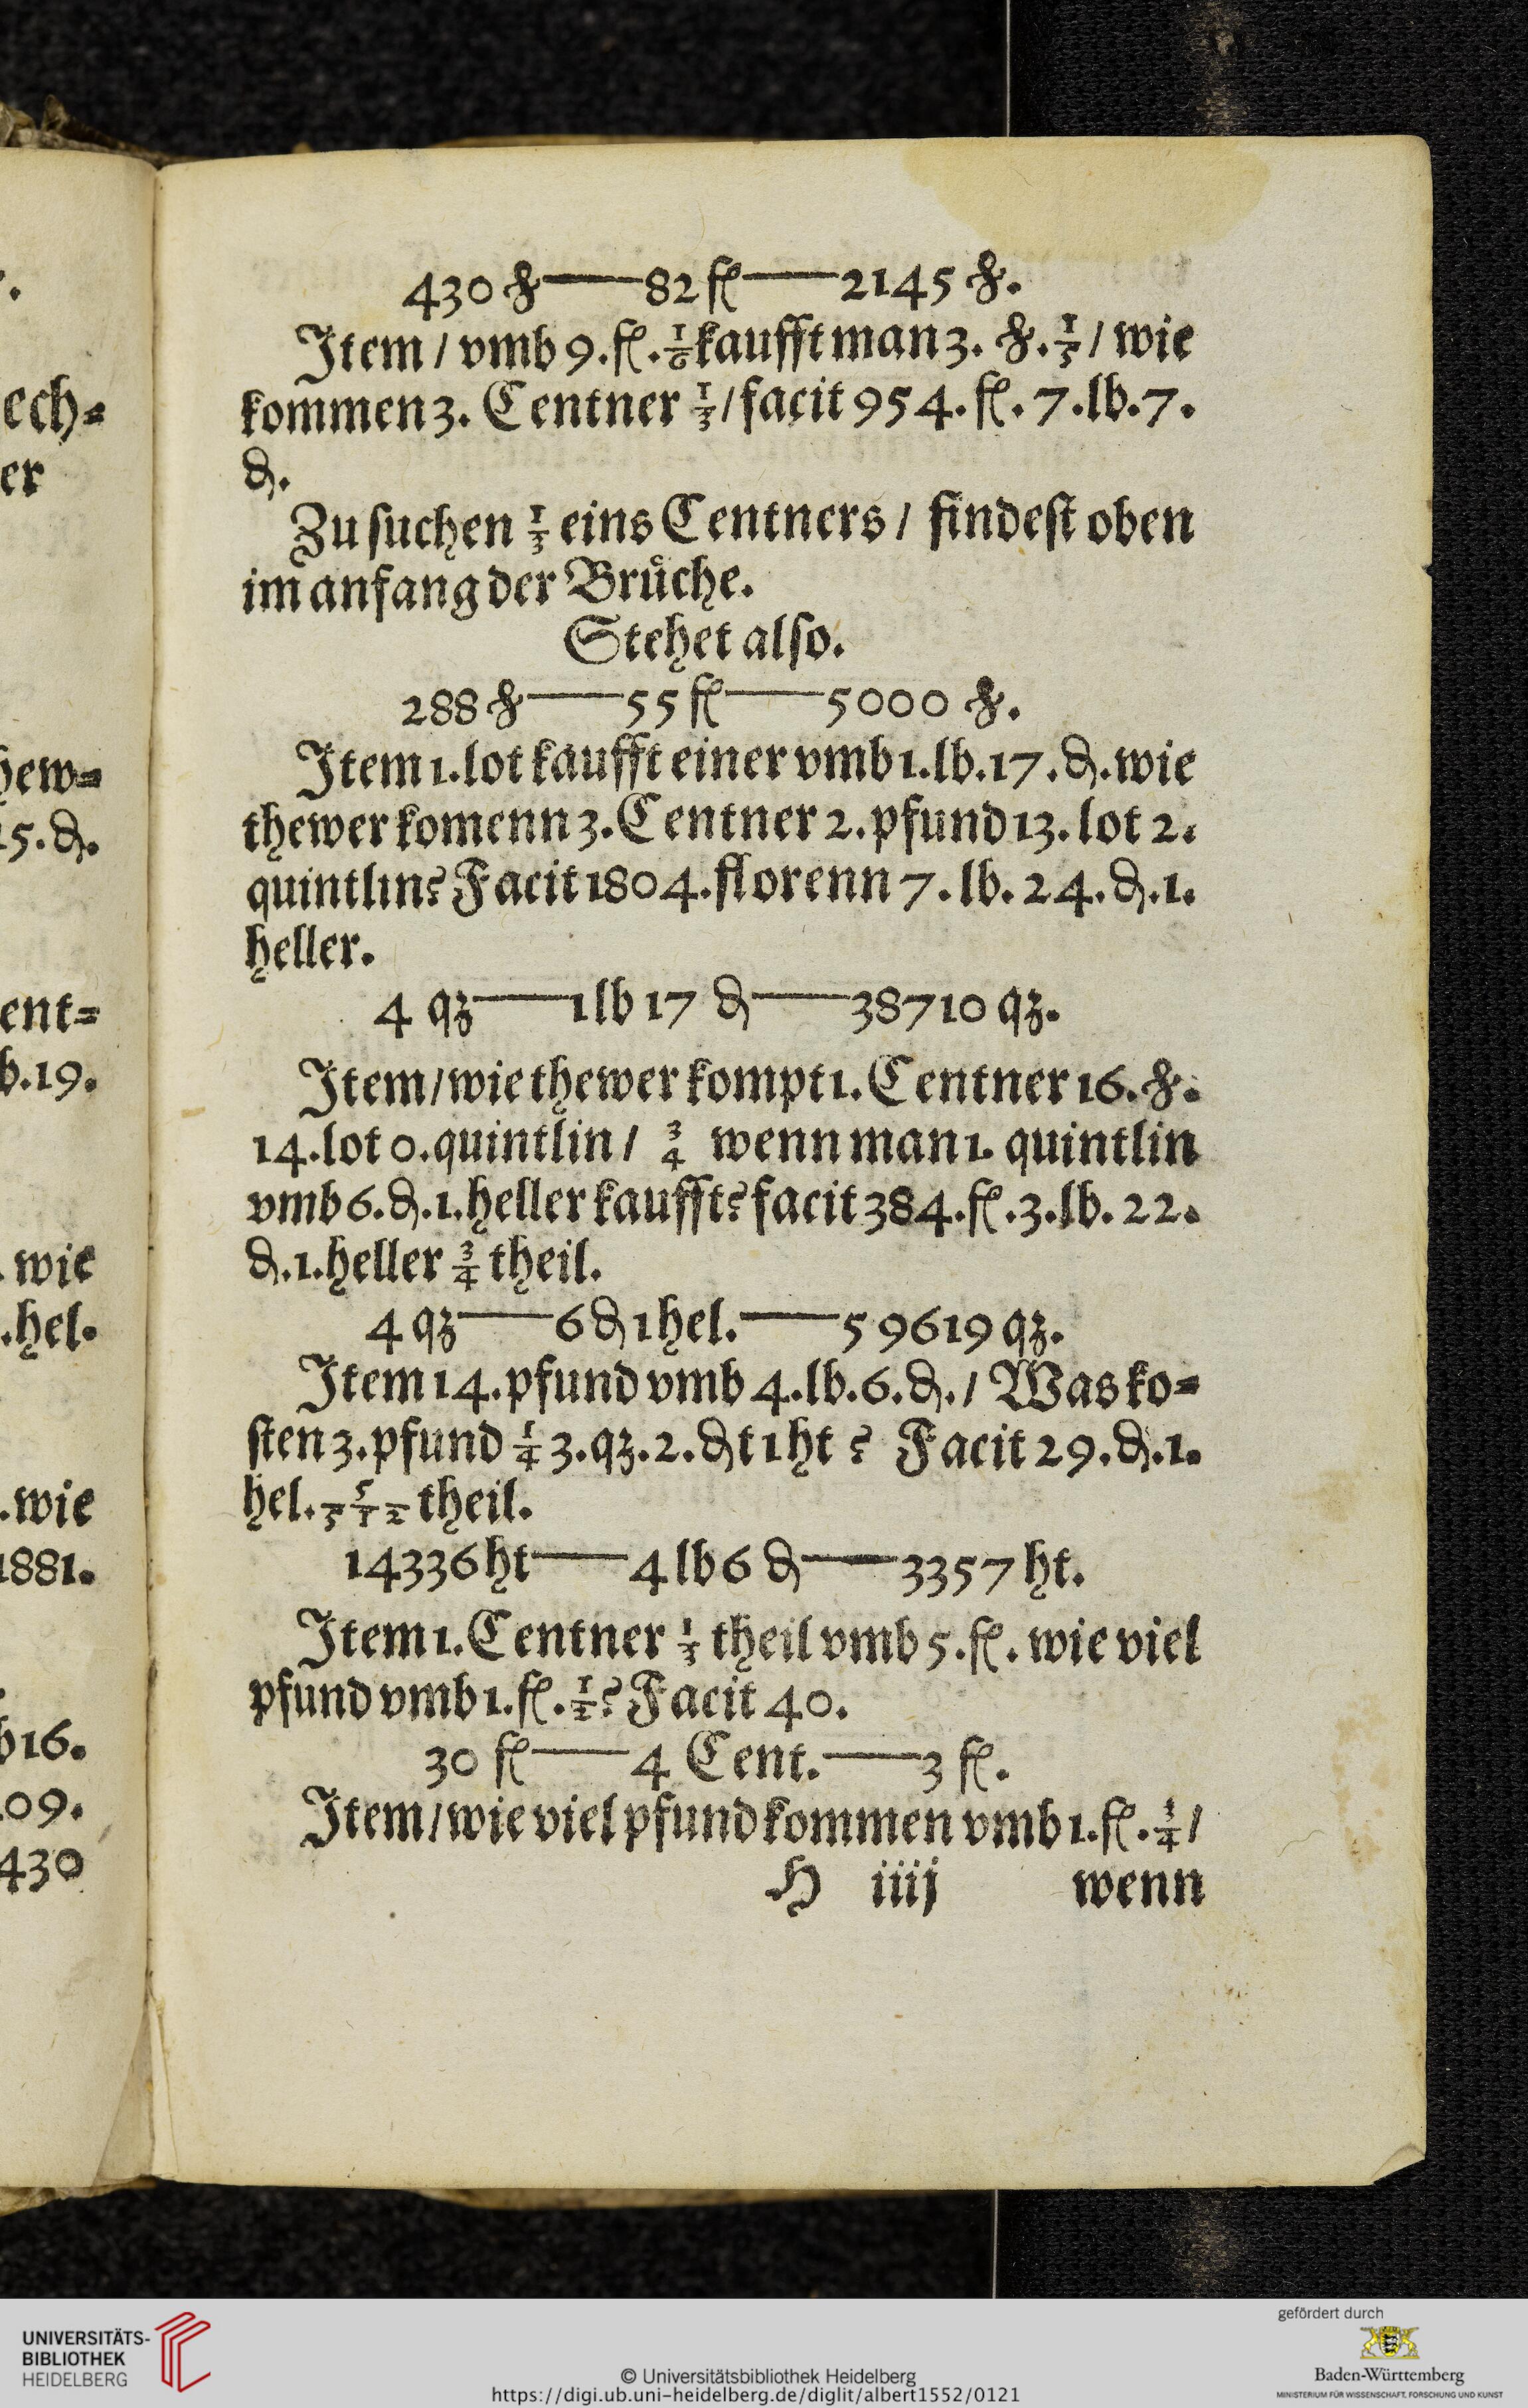 430 ℔——82 fl——2145 ℔.
Item / vmb 9. fl. 1/6 kaufft man 3. ℔. 1/5 / wie
kommen 3. Centner 1/3 / facit 954. fl. 7. lb. 7.
₰.
Zu suchen 1/3 eins Centners / findest oben
im anfang der Bruͤche.
Stehet also.
288 ℔——55 fl——5000 ℔.
Item 1. lot kaufft einer vmb 1. lb. 17. ₰. wie
thewer komenn 3. Centner 2. pfund 13. lot 2.
quintlin? Facit 1804. florenn 7. lb. 24. ₰. 1.
heller.
4 qz——1 lb 17 ₰——38710 qz.
Item / wie thewer kompt 1. Centner 16. ℔.
14. lot 0. quintlin / 3/4 wenn man 1. quintlin
vmb 6. ₰. 1. heller kaufft? facit 384. fl. 3. lb. 22.
₰. 1. heller 3/4 theil.
4 qz——6 ₰ 1 hel.——59619 qz.
Item 14. pfund vmb 4. lb. 6. ₰. / Was ko=
sten 3. pfund 1/4 3. qz. 2. ₰t 1 ht? Facit 29. ₰. 1.
hel. 5/512 theil.
14336 ht——4 lb 6 ₰——3357 ht.
Item 1. Centner 1/3 theil vmb 5. fl. wie viel
pfund vmb 1. fl. 1/2? Facit 40.
30 fl——4 Cent.——3 fl.
Item / wie viel pfund kommen vmb 1. fl. 1/4 /
H iiij wenn
ech=
er
hew=
15. ₰.
ent=
b. 19.
. wie
. hel.
. wie
1881.
b 16.
09.
430
UNIVERSITÄTS-
BIBLIOTHEK
HEIDELBERG
© Universitätsbibliothek Heidelberg
https://digi.ub.uni-heidelberg.de/diglit/albert1552/0121
gefördert durch
Baden-Württemberg
MINISTERIUM FÜR WISSENSCHAFT, FORSCHUNG UND KUNST